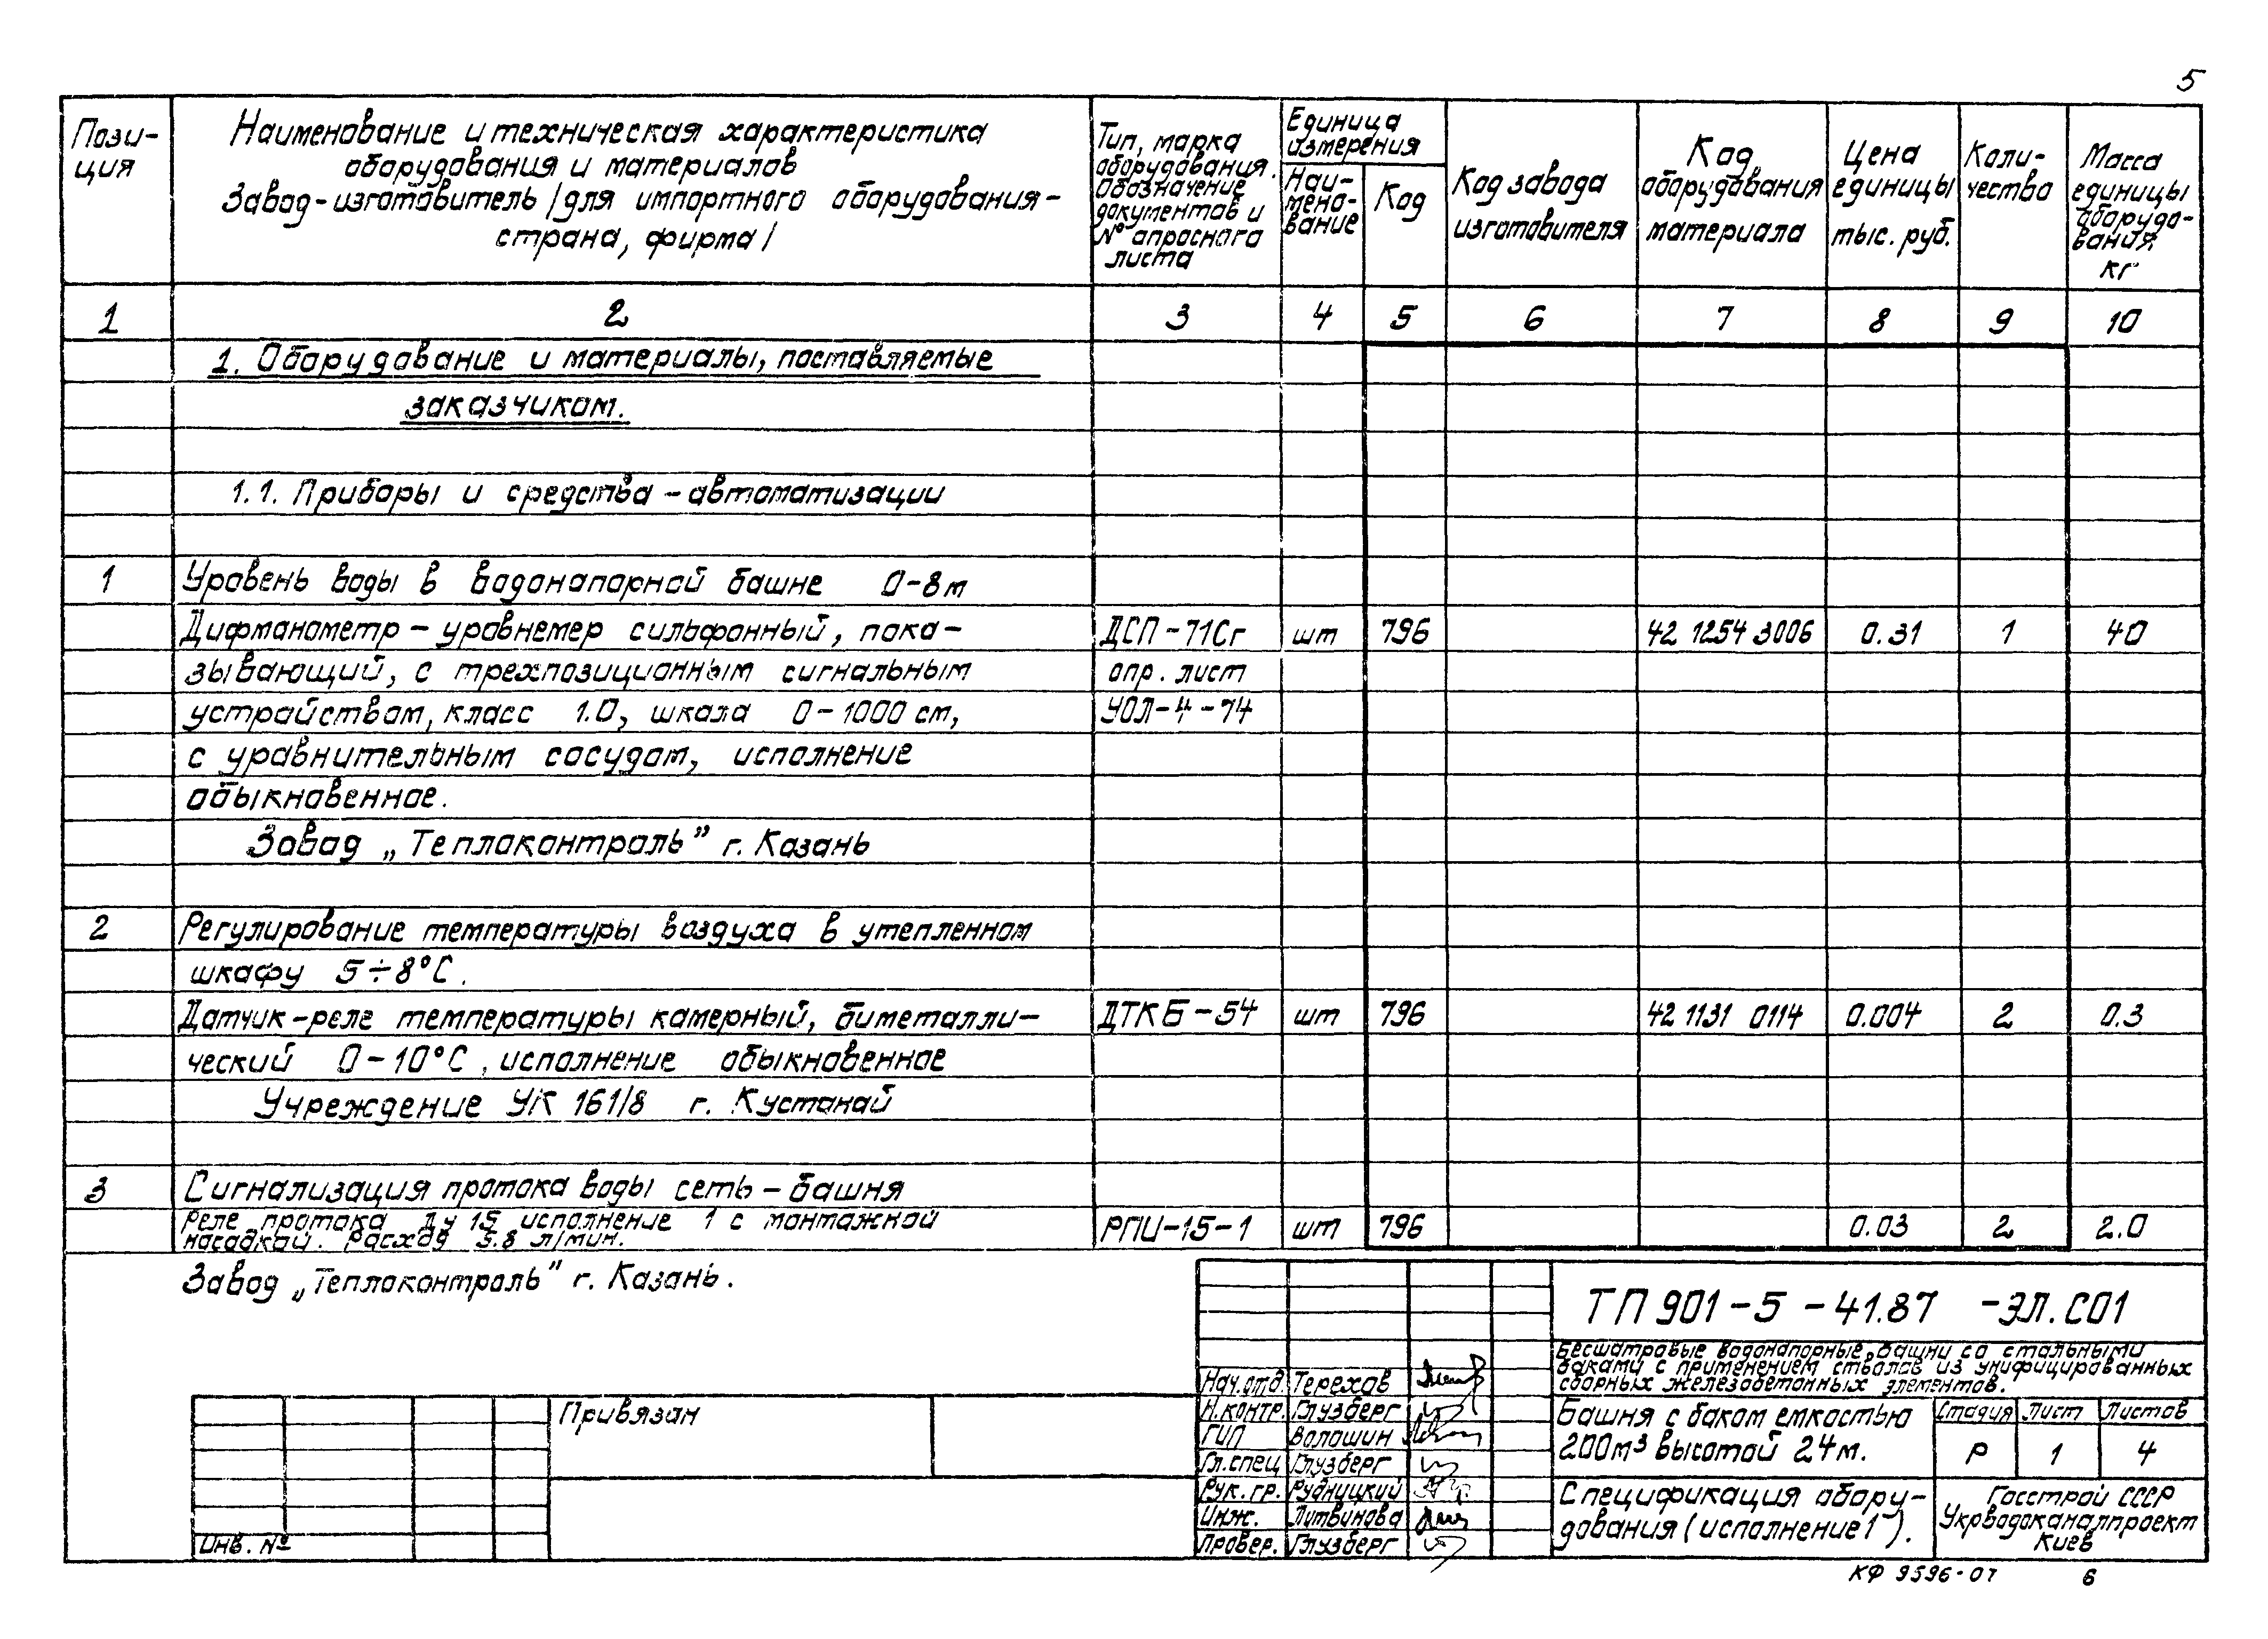 5
Пози-
ция
Наименование и техническая характеристика
оборудования и материалов
Завод-изготовитель /для импортного оборудования-
страна, фирма/
Тип, марка
оборудования.
Обозначение
документов и
№ опросного
листа
Единица
измерения
Наи-
мено-
вание
Код
Код завода
изготовителя
Код
оборудования
материала
Цена
единицы
тыс. руб.
Коли-
чество
Масса
единицы
оборудо-
вания,
кг
1 2 3 4 5 6 7 8 9 10
1. Оборудование и материалы, поставляемые
заказчиком.
1.1. Приборы и средства-автоматизации
1 Уровень воды в водонапорной башне 0-8м
Дифманометр-уровнемер сильфонный, пока- ДСП-71Сг шт 796 42 1254 3006 0.31 1 40
зывающий, с трехпозиционным сигнальным опр. лист
устройством, класс 1.0, шкала 0-1000 см, УОЛ-4-74
с уравнительным сосудом, исполнение
обыкновенное.
Завод „Теплоконтроль” г. Казань
2 Регулирование температуры воздуха в утепленном
шкафу 5÷8°С.
Датчик-реле температуры камерный, биметалли- ДТКБ-54 шт 796 42 1131 0114 0.004 2 0.3
ческий 0-10°С, исполнение обыкновенное
Учреждение УК 161/8 г. Кустанай
3 Сигнализация протока воды сеть-башня
Реле протока Ду 15 исполнение 1 с монтажной РПИ-15-1 шт 796 0.03 2 2.0
насадкой. Расход 5.8 л/мин.
Завод „Теплоконтроль” г. Казань.
ТП 901-5-41.87 -ЭЛ.СО1
Бесшатровые водонапорные башни со стальными
баками с применением стволов из унифицированных
сборных железобетонных элементов.
Нач.отд. Терехов
Н.контр. Глузберг
ГИП Волошин
Гл.спец Глузберг
Рук.гр. Рудницкий
Инж. Литвинова
Провер. Глузберг
Башня с баком емкостью
200м³ высотой 24м.
Стадия Лист Листов
Р 1 4
Спецификация обору-
дования (исполнение 1).
Госстрой СССР
Укрводоканалпроект
Киев
Привязан
Инв. №
КФ 9596-07 6